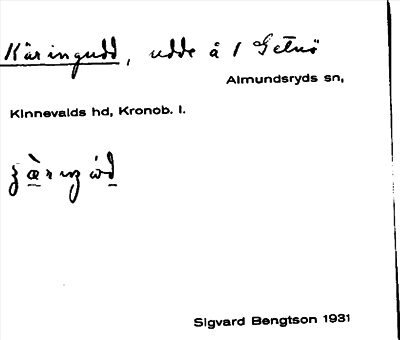 Käringudd, udde å 1 Getnö
Almundsryds sn,
Kinnevalds hd, Kronob. l.
Sigvard Bengtson 1931